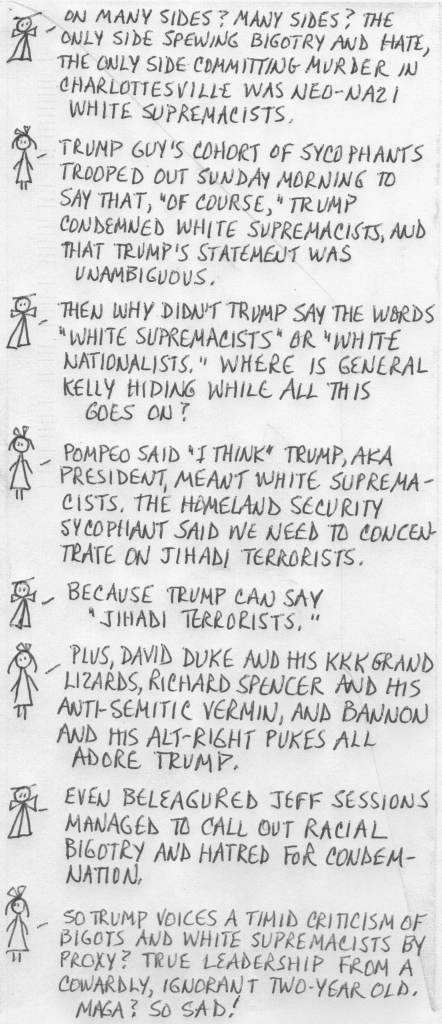 ON MANY SIDES? MANY SIDES? THE
ONLY SIDE SPEWING BIGOTRY AND HATE,
THE ONLY SIDE COMMITTING MURDER IN
CHARLOTTESVILLE WAS NEO-NAZI
WHITE SUPREMACISTS.
TRUMP GUY'S COHORT OF SYCOPHANTS
TROOPED OUT SUNDAY MORNING TO
SAY THAT, "OF COURSE," TRUMP
CONDEMNED WHITE SUPREMACISTS, AND
THAT TRUMP'S STATEMENT WAS
UNAMBIGUOUS.
THEN WHY DIDN'T TRUMP SAY THE WORDS
"WHITE SUPREMACISTS" OR "WHITE
NATIONALISTS." WHERE IS GENERAL
KELLY HIDING WHILE ALL THIS
GOES ON?
POMPEO SAID "I THINK" TRUMP, AKA
PRESIDENT, MEANT WHITE SUPREMA-
CISTS. THE HOMELAND SECURITY
SYCOPHANT SAID WE NEED TO CONCEN-
TRATE ON JIHADI TERRORISTS.
BECAUSE TRUMP CAN SAY
"JIHADI TERRORISTS."
PLUS, DAVID DUKE AND HIS KKK GRAND
LIZARDS, RICHARD SPENCER AND HIS
ANTI-SEMITIC VERMIN, AND BANNON
AND HIS ALT-RIGHT PUKES ALL
ADORE TRUMP.
EVEN BELEAGURED JEFF SESSIONS
MANAGED TO CALL OUT RACIAL
BIGOTRY AND HATRED FOR CONDEM-
NATION.
SO TRUMP VOICES A TIMID CRITICISM OF
BIGOTS AND WHITE SUPREMACISTS BY
PROXY? TRUE LEADERSHIP FROM A
COWARDLY, IGNORANT TWO-YEAR OLD.
MAGA? SO SAD!